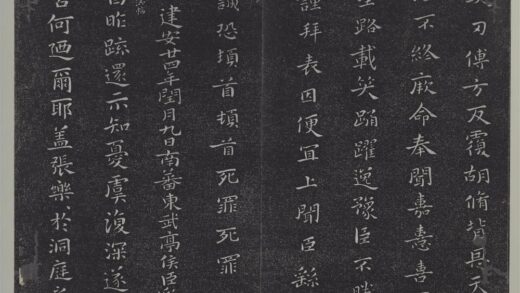 刃傅方反覆胡脩背恩天
不終厥命奉聞嘉憙喜
路載笑踴躍逸豫臣不勝
謹拜表因便宜上聞臣繇
誠恐頓首頓首死罪死罪
建安廿四年閏月九日南蕃東武亭侯臣繇
白昨疏還示知憂虞復深遂
何迺爾耶蓋張樂於洞庭之